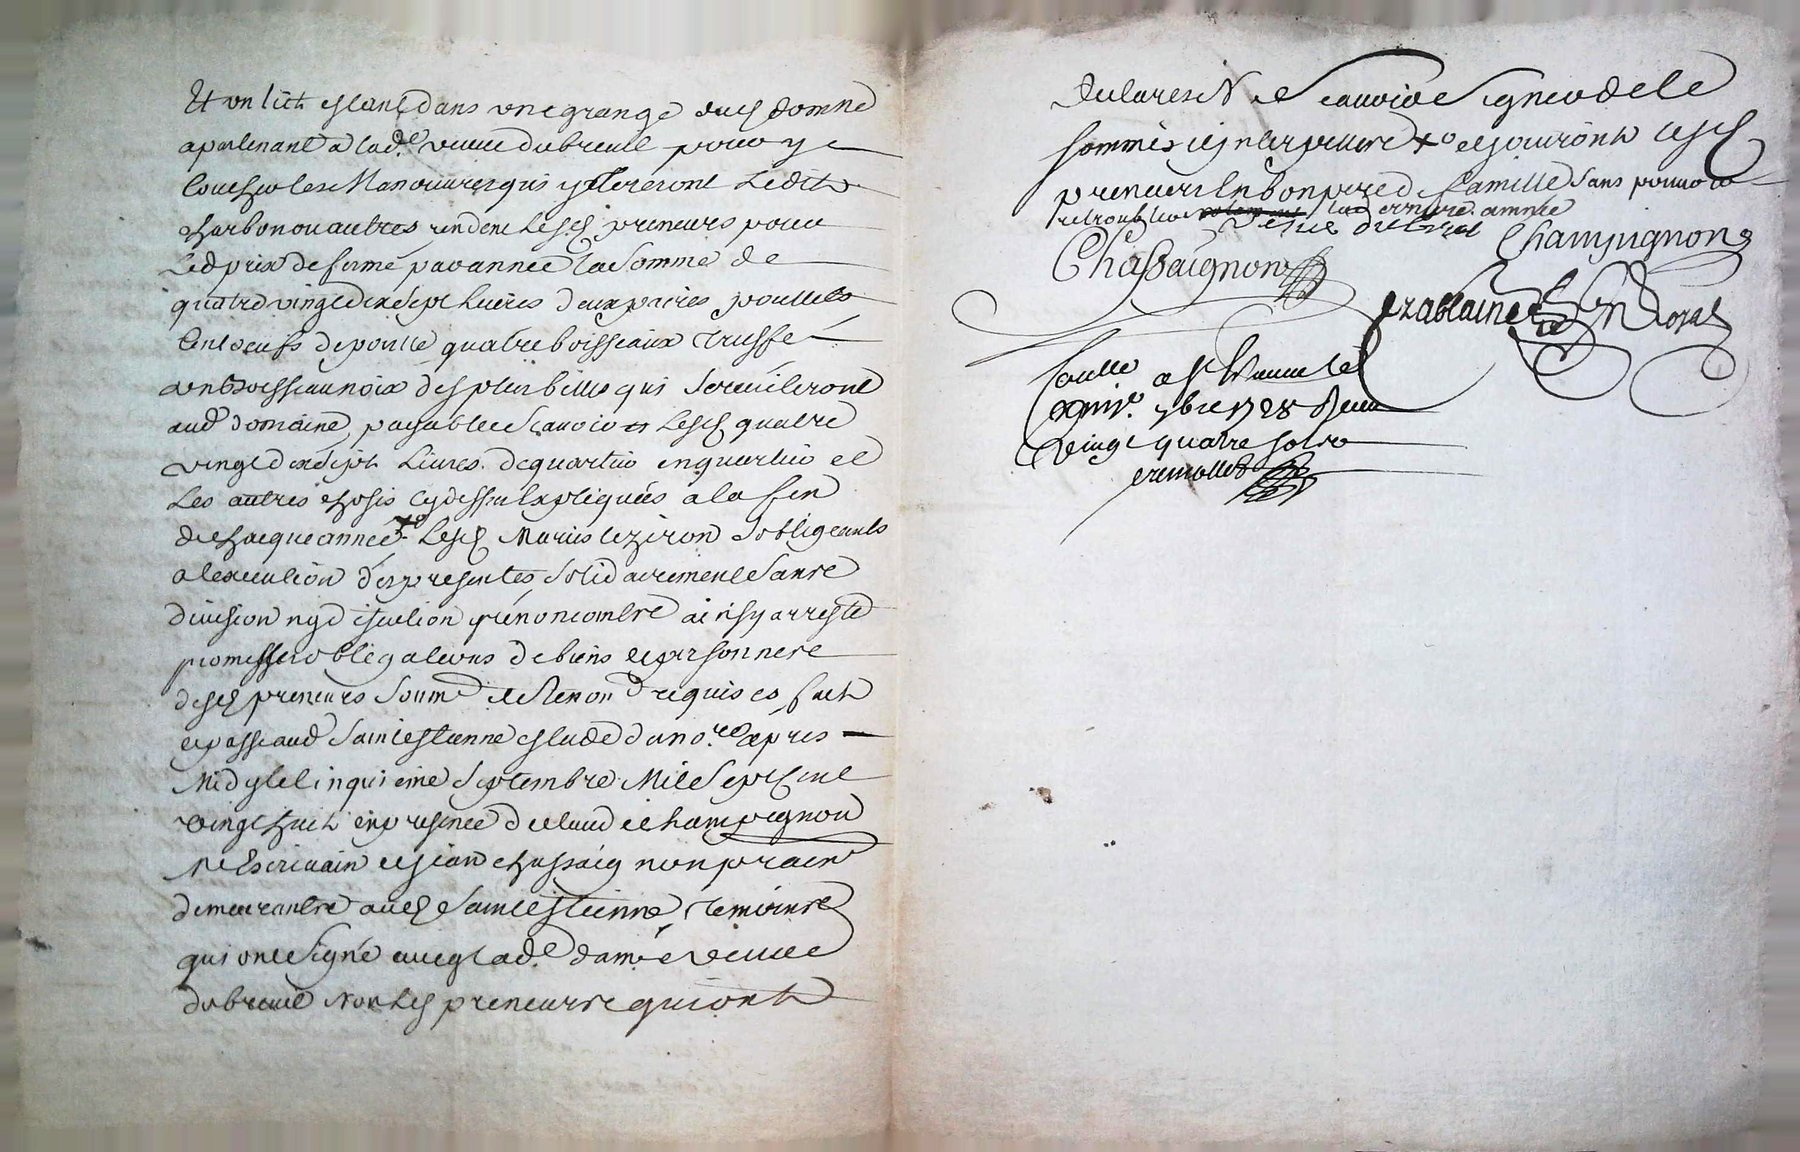 Et un lict estant dans une grange dud domne
apartenant a lad.e veuve dubreuil pour y
coucher les Manouvres qui y tireront ledit
charbon ou autres rendent lesd preneurs pour
led prix de ferme par année la somme de
quatre vingt dix sept livres deux paires poullets
Cent oeufs de poulle quatre boisseaux truffe
un boisseau noix des plus belles qui se reculieront
aud domaine, payable scavoir lesd quatre
vingt dix sept Livres de quartier en quartier et
Les autres choses cy dessus Expliquées a la fin
de chacque année Lesd Maries s'obligeants
a lexecution des presentes solidairement sans
division ny discution y renoncent ainsy arresté
promesses obligations de biens et personnes
desd preneurs soumd et Renond requises fait
et passé aud Saint Estienne estude du no.re apres
Midy le cinquieme septembre Mil sept cent
vingt huit en presence de claude champignon
Me Escrivain et jean chassaignon praen
demeurants aud Saint Estienne temoins
qui ont signé avec lad.e dame veuve
dubreuil Non Les preneurs qui ont
declarés Ne scavoir signer de le
sommés et interpellés et jouiront lesd
preneurs En bon pere d famille sans pouvoir
la derniere année
veuve dubreuil Champignon
Chassaignon
Conllé a St Etienne le
7bre 1728 Receu
vingt quatre sols